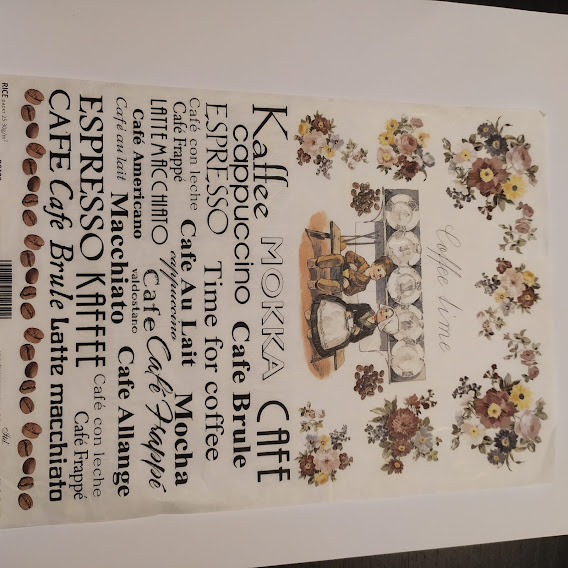 Coffee time
Kaffee MOKKA CAFE
cappuccino Cafe Brule
ESPRESSO Time for coffee
Café con leche Cafe Au Lait Mocha
Café Frappé cappuccino
LAITE MACCHIATO Cafe Café Frappé
Café Americano valdostano
Café au lait Macchiato Cafe Allange
ESPRESSO KAFFEE Café con leche
Café Frappé
CAFE Café Brule Latte macchiato
RICE paper